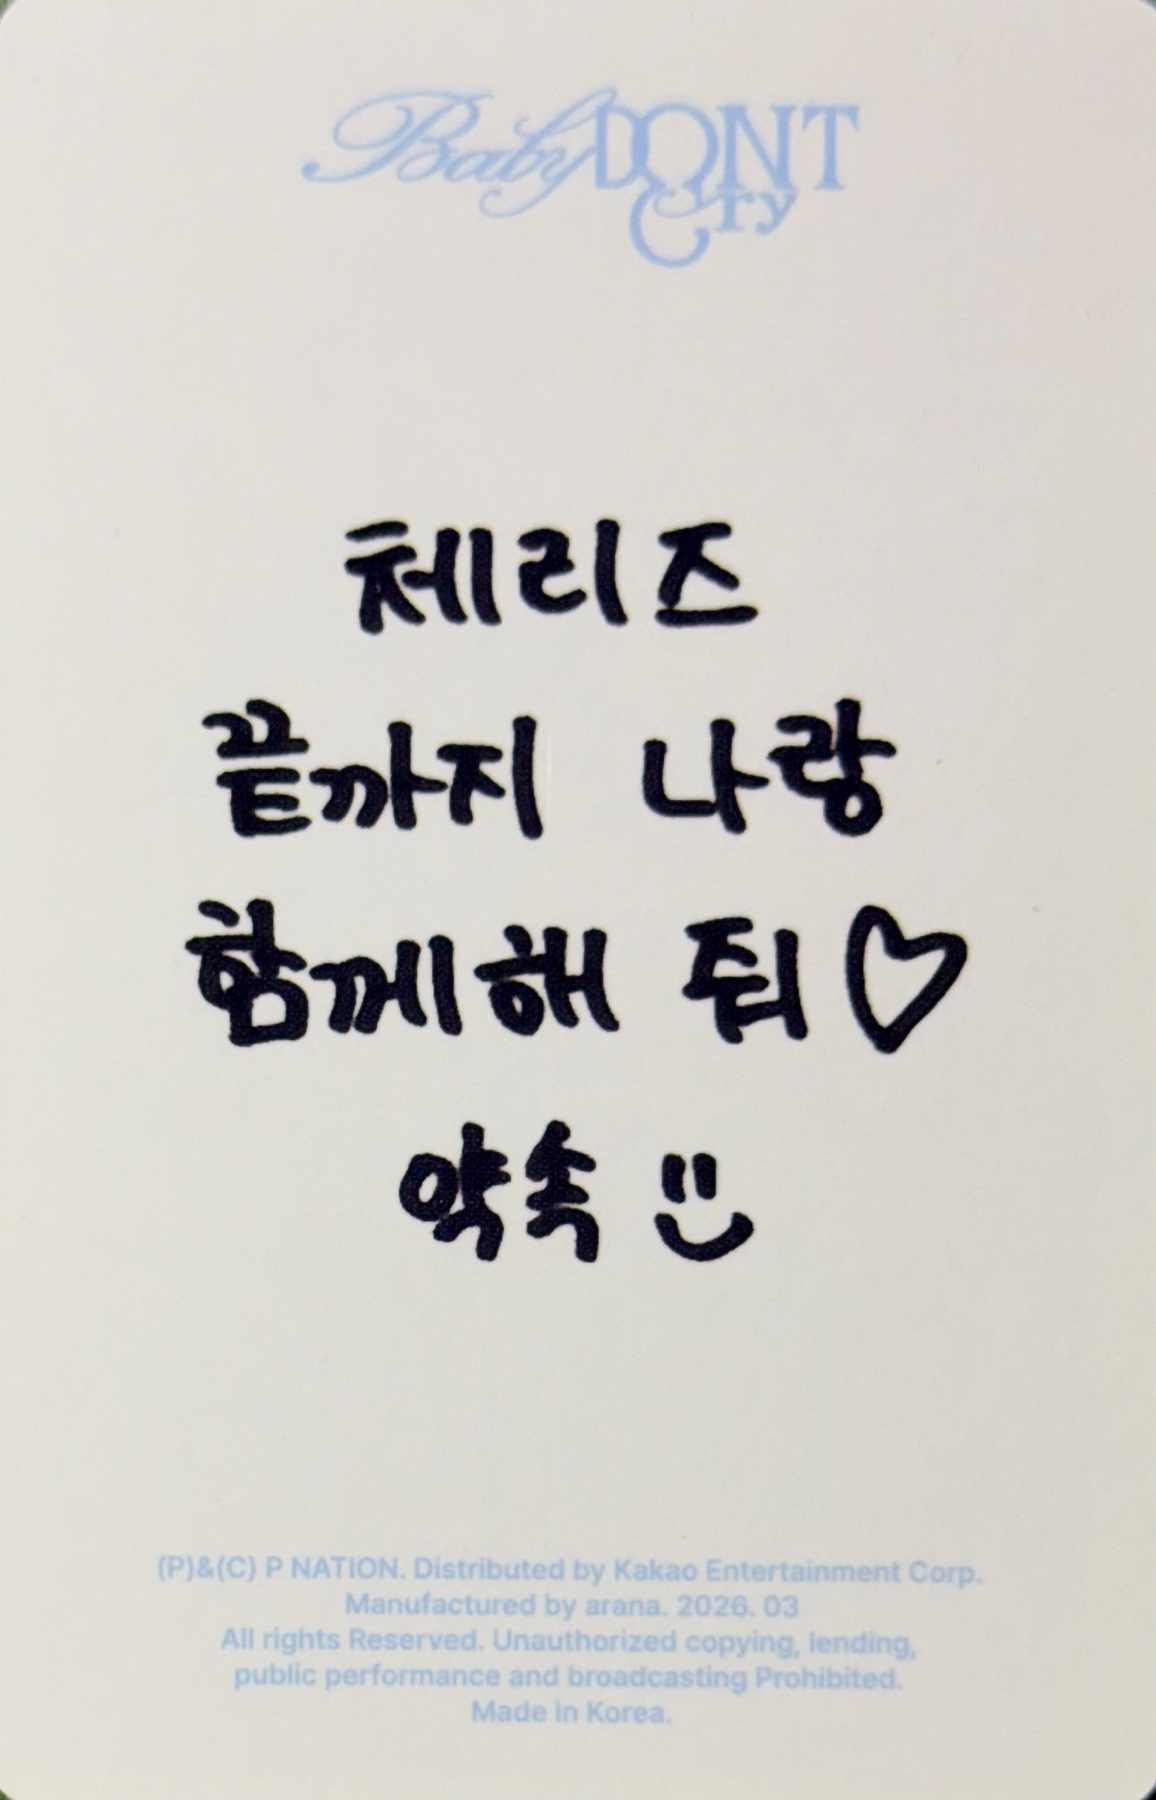 Baby DONT
Cry
체리즈
끝까지 나랑
함께해 줘♡
약속
(P)&(C) P NATION. Distributed by Kakao Entertainment Corp.
Manufactured by arana. 2026. 03
All rights Reserved. Unauthorized copying, lending,
public performance and broadcasting Prohibited.
Made in Korea.